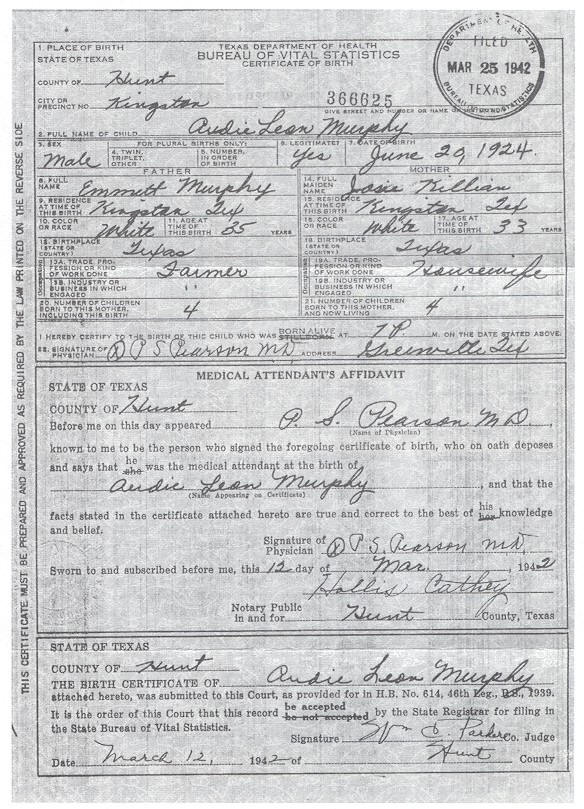 TEXAS DEPARTMENT OF HEALTH
BUREAU OF VITAL STATISTICS
CERTIFICATE OF BIRTH
DEPARTMENT OF HEALTH
FILED
MAR 25 1942
TEXAS
BUREAU OF VITAL STATISTICS
1. PLACE OF BIRTH
STATE OF TEXAS
COUNTY OF Hunt
CITY OR PRECINCT NO. Kingston
366625
GIVE STREET AND NUMBER OR NAME OF INSTITUTION
2. FULL NAME OF CHILD Audie Leon Murphy
3. SEX Male
FOR PLURAL BIRTHS ONLY:
4. TWIN, TRIPLET, OTHER
5. NUMBER, IN ORDER OF BIRTH
6. LEGITIMATE? Yes
7. DATE OF BIRTH June 20, 1924.
FATHER
MOTHER
8. FULL NAME Emmett Murphy
14. FULL MAIDEN NAME Josie Killian
9. RESIDENCE AT TIME OF THIS BIRTH Kingston Tex
15. RESIDENCE AT TIME OF THIS BIRTH Kingston Tex
10. COLOR OR RACE White
11. AGE AT TIME OF THIS BIRTH 35 YEARS
16. COLOR OR RACE White
17. AGE AT TIME OF THIS BIRTH 33 YEARS
12. BIRTHPLACE (STATE OR COUNTRY) Texas
18. BIRTHPLACE (STATE OR COUNTRY) Texas
Occupation
13A. TRADE, PROFESSION OR KIND OF WORK DONE Farmer
19A. TRADE, PROFESSION OR KIND OF WORK DONE Housewife
13B. INDUSTRY OR BUSINESS IN WHICH ENGAGED "
19B. INDUSTRY OR BUSINESS IN WHICH ENGAGED "
20. NUMBER OF CHILDREN BORN TO THIS MOTHER, INCLUDING THIS BIRTH 4
21. NUMBER OF CHILDREN BORN TO THIS MOTHER AND NOW LIVING 4
I HEREBY CERTIFY TO THE BIRTH OF THIS CHILD WHO WAS BORN ALIVE STILLBORN AT 7 P M. ON THE DATE STATED ABOVE.
22. SIGNATURE OF PHYSICIAN P S Pearson MD ADDRESS Greenville Tex
MEDICAL ATTENDANT'S AFFIDAVIT
STATE OF TEXAS
COUNTY OF Hunt
Before me on this day appeared P. S. Pearson MD,
(Name of Physician)
known to me to be the person who signed the foregoing certificate of birth, who on oath deposes
and says that he she was the medical attendant at the birth of
Audie Leon Murphy, and that the
(Name Appearing on Certificate)
facts stated in the certificate attached hereto are true and correct to the best of his her knowledge
and belief.
Signature of Physician P S. Pearson MD.
Sworn to and subscribed before me, this 12 day of Mar., 1942
Hollis Cathey
Notary Public in and for Hunt County, Texas
STATE OF TEXAS
COUNTY OF Hunt
THE BIRTH CERTIFICATE OF Audie Leon Murphy
attached hereto, was submitted to this Court, as provided for in H.B. No. 614, 46th Leg., R.S., 1939.
It is the order of this Court that this record be accepted be not accepted by the State Registrar for filing in
the State Bureau of Vital Statistics.
Signature Wm C. Parker Co. Judge
Date March 12, 1942 of Hunt County
THIS CERTIFICATE MUST BE PREPARED AND APPROVED AS REQUIRED BY THE LAW PRINTED ON THE REVERSE SIDE